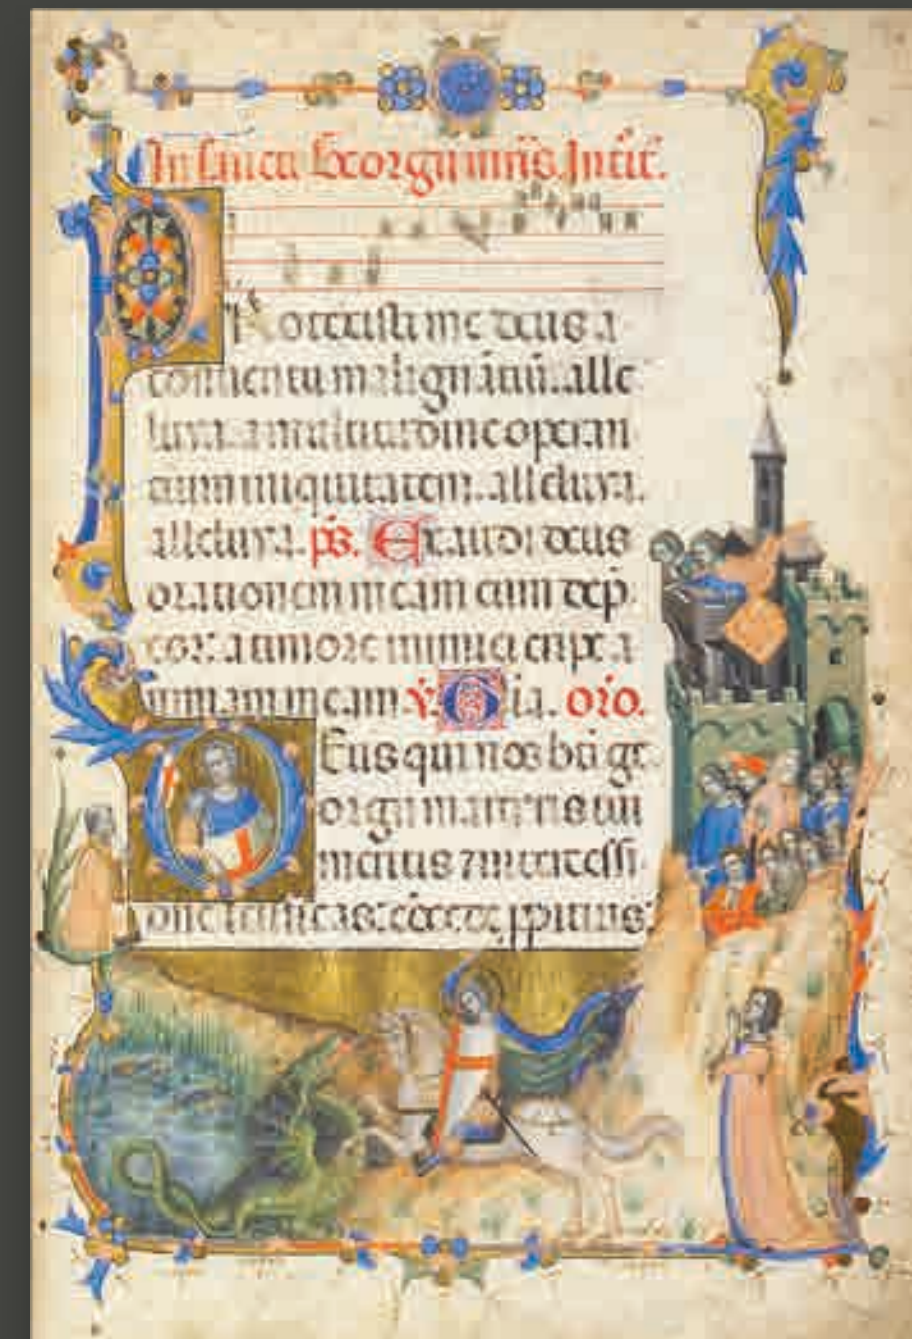 In sancti Georgii mris. Introit.
Protexisti me deus a
conuentu malignātiū. alle
luya. a multitudine operan
tium iniquitatem. alleluya.
alleluya. ps. Exaudi deus
orationem meam cum dep̄
cor. a timore inimici eripe a
nimam meam. V. Glia. oro.
Deus qui nos bti ge
orgii martiris tui
meritis et intercessi
one letificas: concede ppitius: